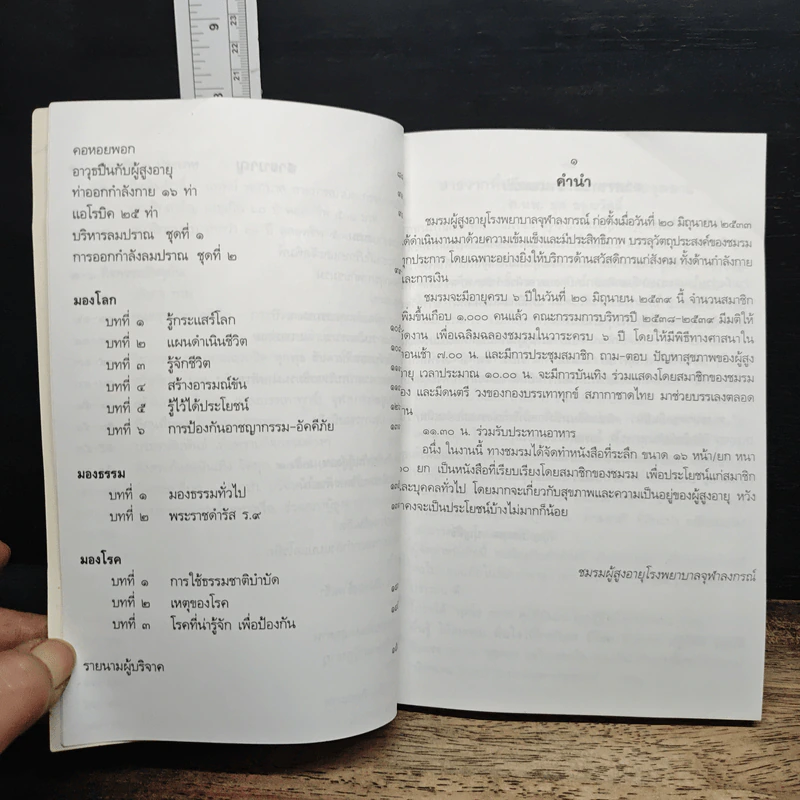 คอหอยพอก
อาวุธปืนกับผู้สูงอายุ
ท่าออกกำลังกาย ๑๖ ท่า
แอโรบิค ๒๕ ท่า
บริหารลมปราณ ชุดที่ ๑
การออกกำลังลมปราณ ชุดที่ ๒
มองโลก
บทที่ ๑ รู้กระแสร์โลก
บทที่ ๒ แผนดำเนินชีวิต
บทที่ ๓ รู้จักชีวิต
บทที่ ๔ สร้างอารมณ์ขัน
บทที่ ๕ รู้ไว้ได้ประโยชน์
บทที่ ๖ การป้องกันอาชญากรรม-อัคคีภัย
มองธรรม
บทที่ ๑ มองธรรมทั่วไป
บทที่ ๒ พระราชดำรัส ร.๙
มองโรค
บทที่ ๑ การใช้ธรรมชาติบำบัด
บทที่ ๒ เหตุของโรค
บทที่ ๓ โรคที่น่ารู้จัก เพื่อป้องกัน
รายนามผู้บริจาค
๑
คำนำ
ชมรมผู้สูงอายุโรงพยาบาลจุฬาลงกรณ์ ก่อตั้งเมื่อวันที่ ๒๐ มิถุนายน ๒๕๓๓
ได้ดำเนินงานมาด้วยความเข้มแข็งและมีประสิทธิภาพ บรรลุวัตถุประสงค์ของชมรม
ทุกประการ โดยเฉพาะอย่างยิ่งให้บริการด้านสวัสดิการแก่สังคม ทั้งด้านกำลังกาย
และการเงิน
ชมรมจะมีอายุครบ ๖ ปีในวันที่ ๒๐ มิถุนายน ๒๕๓๙ นี้ จำนวนสมาชิก
เพิ่มขึ้นเกือบ ๑,๐๐๐ คนแล้ว คณะกรรมการบริหารปี ๒๕๓๘-๒๕๓๙ มีมติให้
จัดงาน เพื่อเฉลิมฉลองชมรมในวาระครบ ๖ ปี โดยให้มีพิธีทางศาสนาใน
ตอนเช้า ๗.๐๐ น. และมีการประชุมสมาชิก ถาม-ตอบ ปัญหาสุขภาพของผู้สูง
อายุ เวลาประมาณ ๑๐.๐๐ น. จะมีการบันเทิง ร่วมแสดงโดยสมาชิกของชมรม
เอง และมีดนตรี วงของกองบรรเทาทุกข์ สภากาชาดไทย มาช่วยบรรเลงตลอด
งาน
๑๑.๓๐ น. ร่วมรับประทานอาหาร
อนึ่ง ในงานนี้ ทางชมรมได้จัดทำหนังสือที่ระลึก ขนาด ๑๖ หน้า/ยก หนา
ยก เป็นหนังสือที่เรียบเรียงโดยสมาชิกของชมรม เพื่อประโยชน์แก่สมาชิก
และบุคคลทั่วไป โดยมากจะเกี่ยวกับสุขภาพและความเป็นอยู่ของผู้สูงอายุ หวัง
ว่าคงจะเป็นประโยชน์บ้างไม่มากก็น้อย
ชมรมผู้สูงอายุโรงพยาบาลจุฬาลงกรณ์